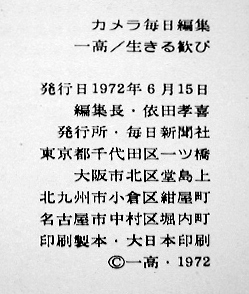 カメラ毎日編集
一高／生きる歓び
発行日1972年6月15日
編集長・依田孝喜
発行所・毎日新聞社
東京都千代田区一ツ橋
大阪市北区堂島上
北九州市小倉区紺屋町
名古屋市中村区堀内町
印刷製本・大日本印刷
©一高・1972